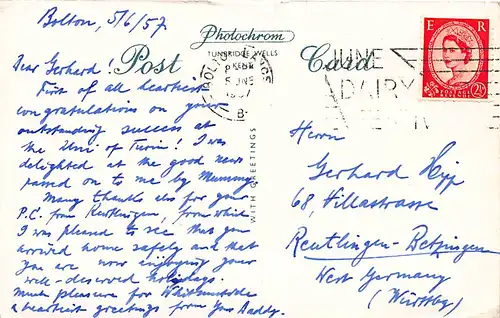 Bolton, 5/6/57
Photochrom
TUNBRIDGE WELLS
Post Card
Dear Gerhard!
First of all heartiest
congratulations on your
outstanding success at
the Univ. of Turin! I was
delighted at the good news
passed on to me by Mummy.
Many thanks also for your
P.C. from from which
I was pleased to see that you
arrived home safely and that
you are now enjoying your
well-deserved holidays.
Much pleasure for Whitsuntide
& heartiest greetings from your Daddy.
WITH GREETINGS
BOLTON LANCS
5 JUNE
1957
B
JUNE
DAIRY
E R
POSTAGE
2½
Herrn
Gerhard
68, Villastrasse
Reutlingen-Betzingen
West Germany
(Württbg)